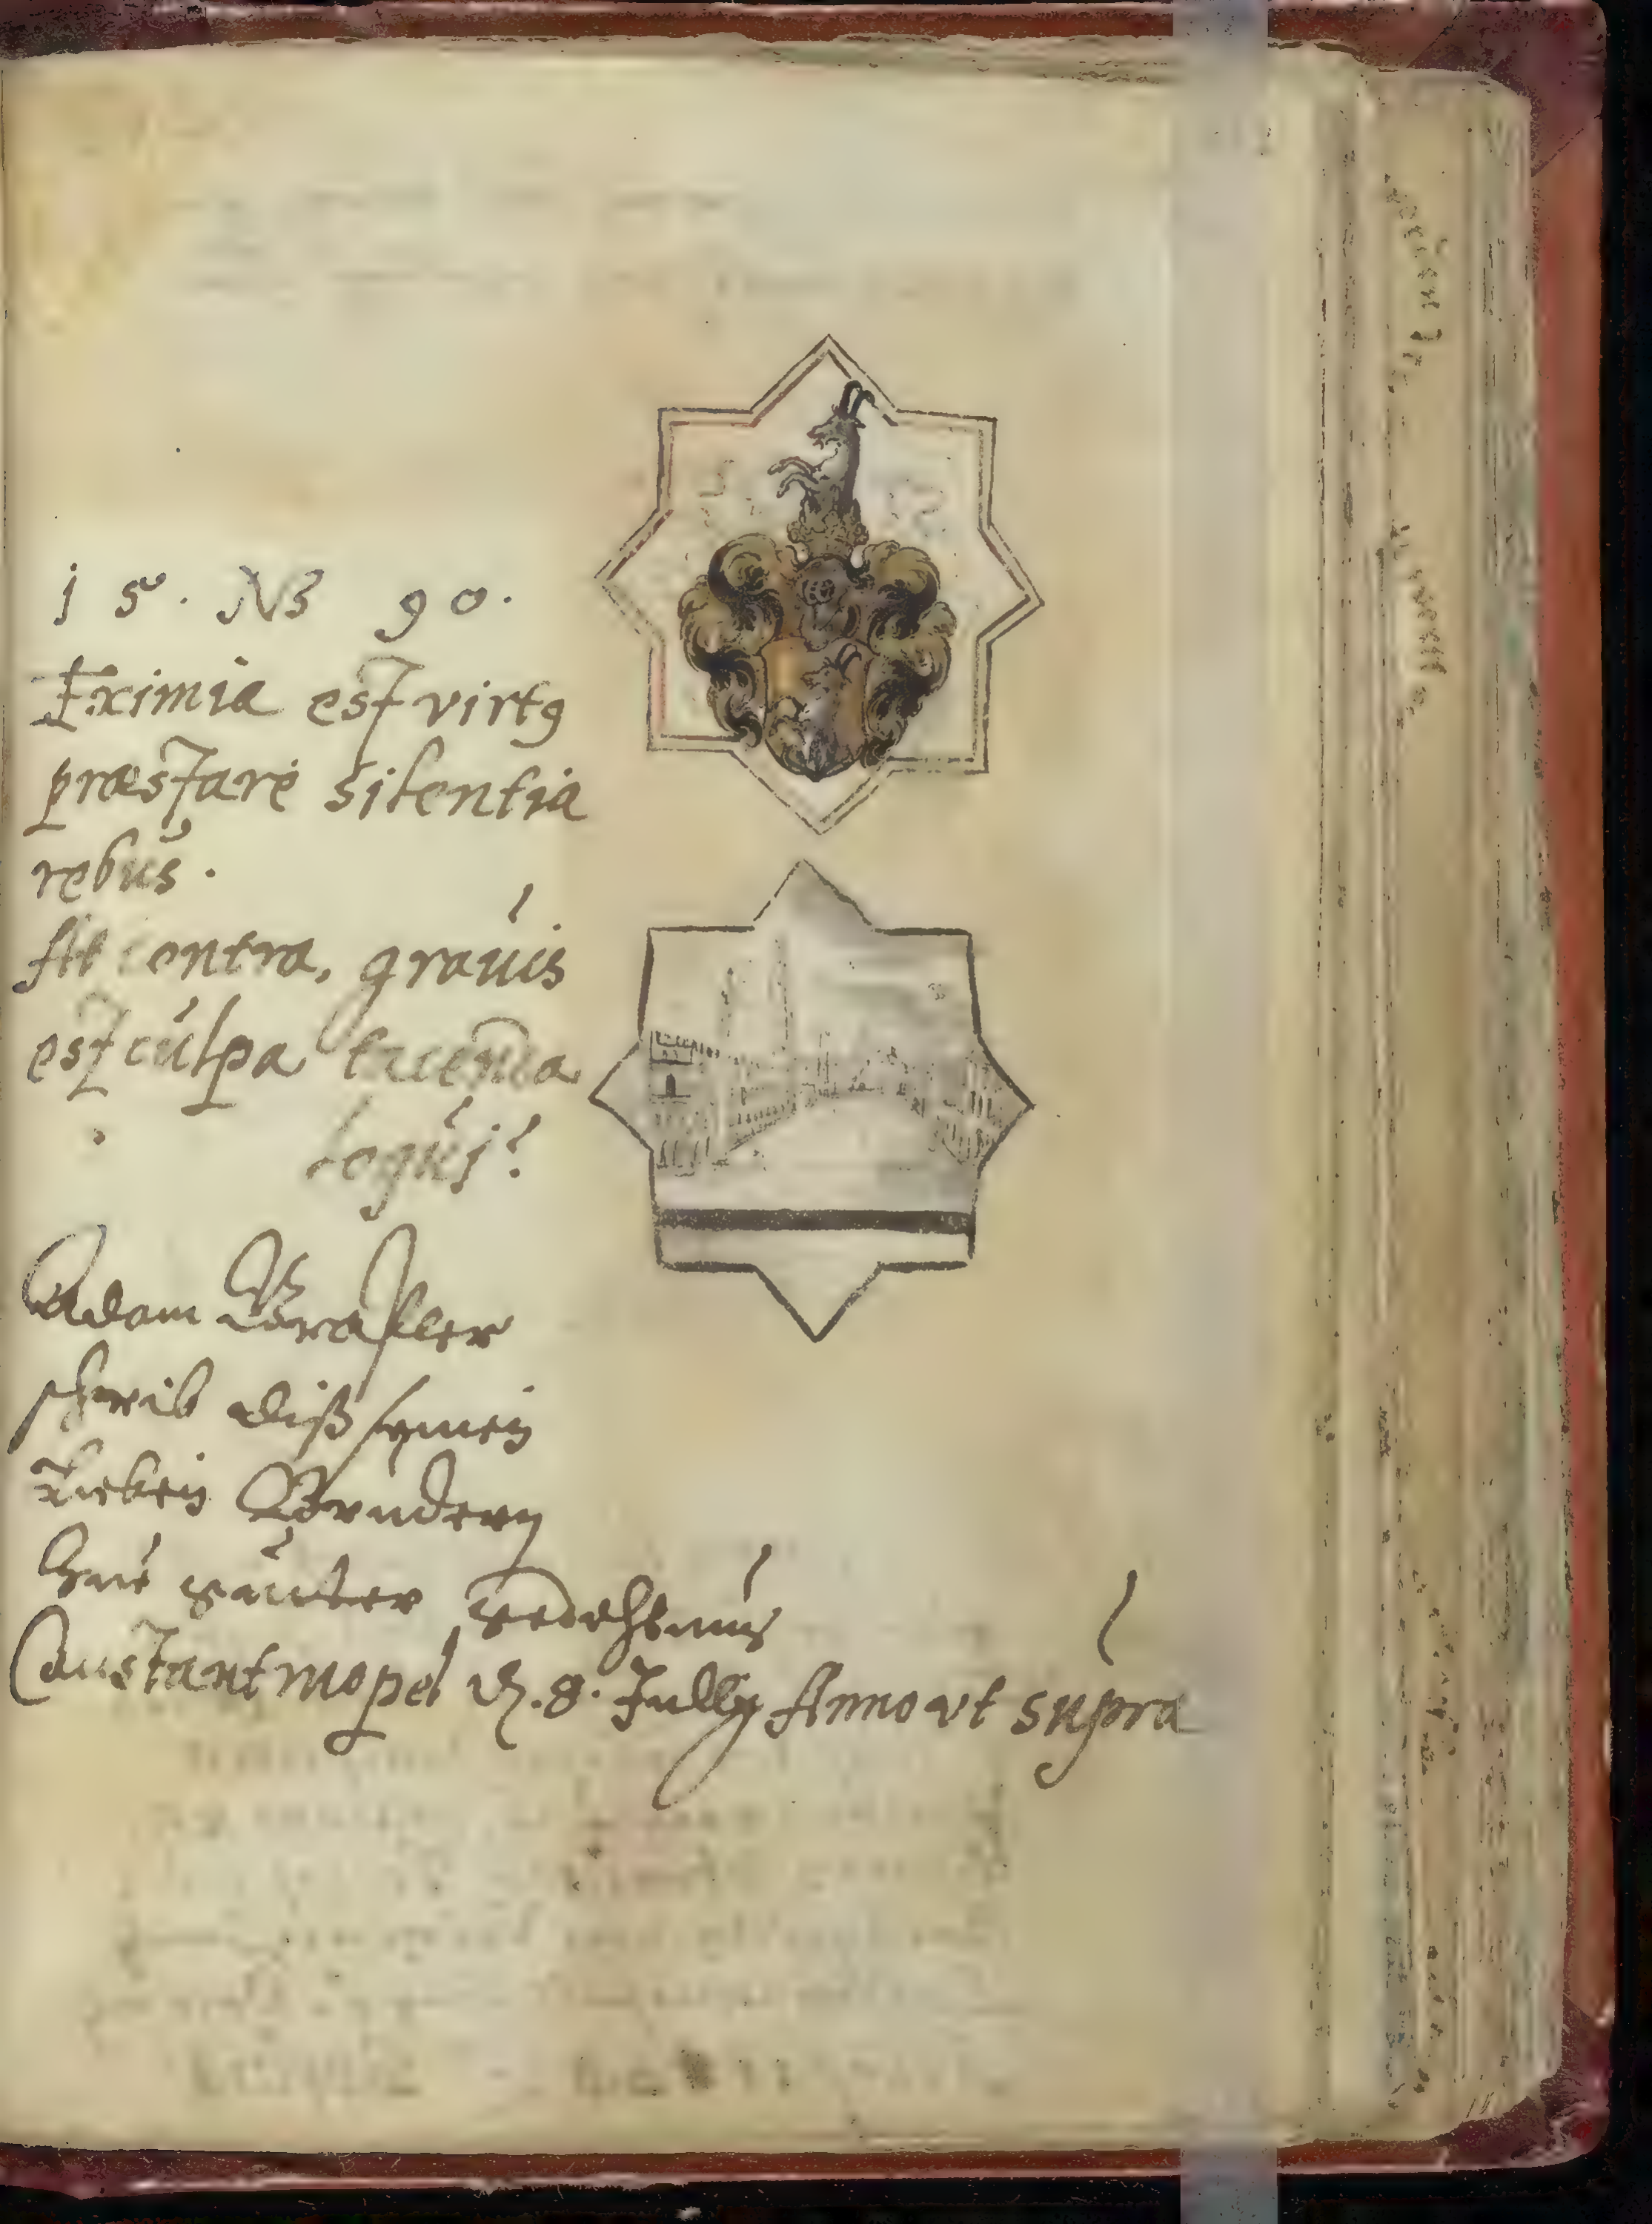 1 5 · NB 90.
Eximia est virtus
præstare silentia
rebus.
At contra, grauis
est culpa tacenda
loqui!
Adam
schreib diß seinen
lieben Bruedern
zue gueter gedechtnus
Constantinopel d. 8. Jullÿ Anno vt supra